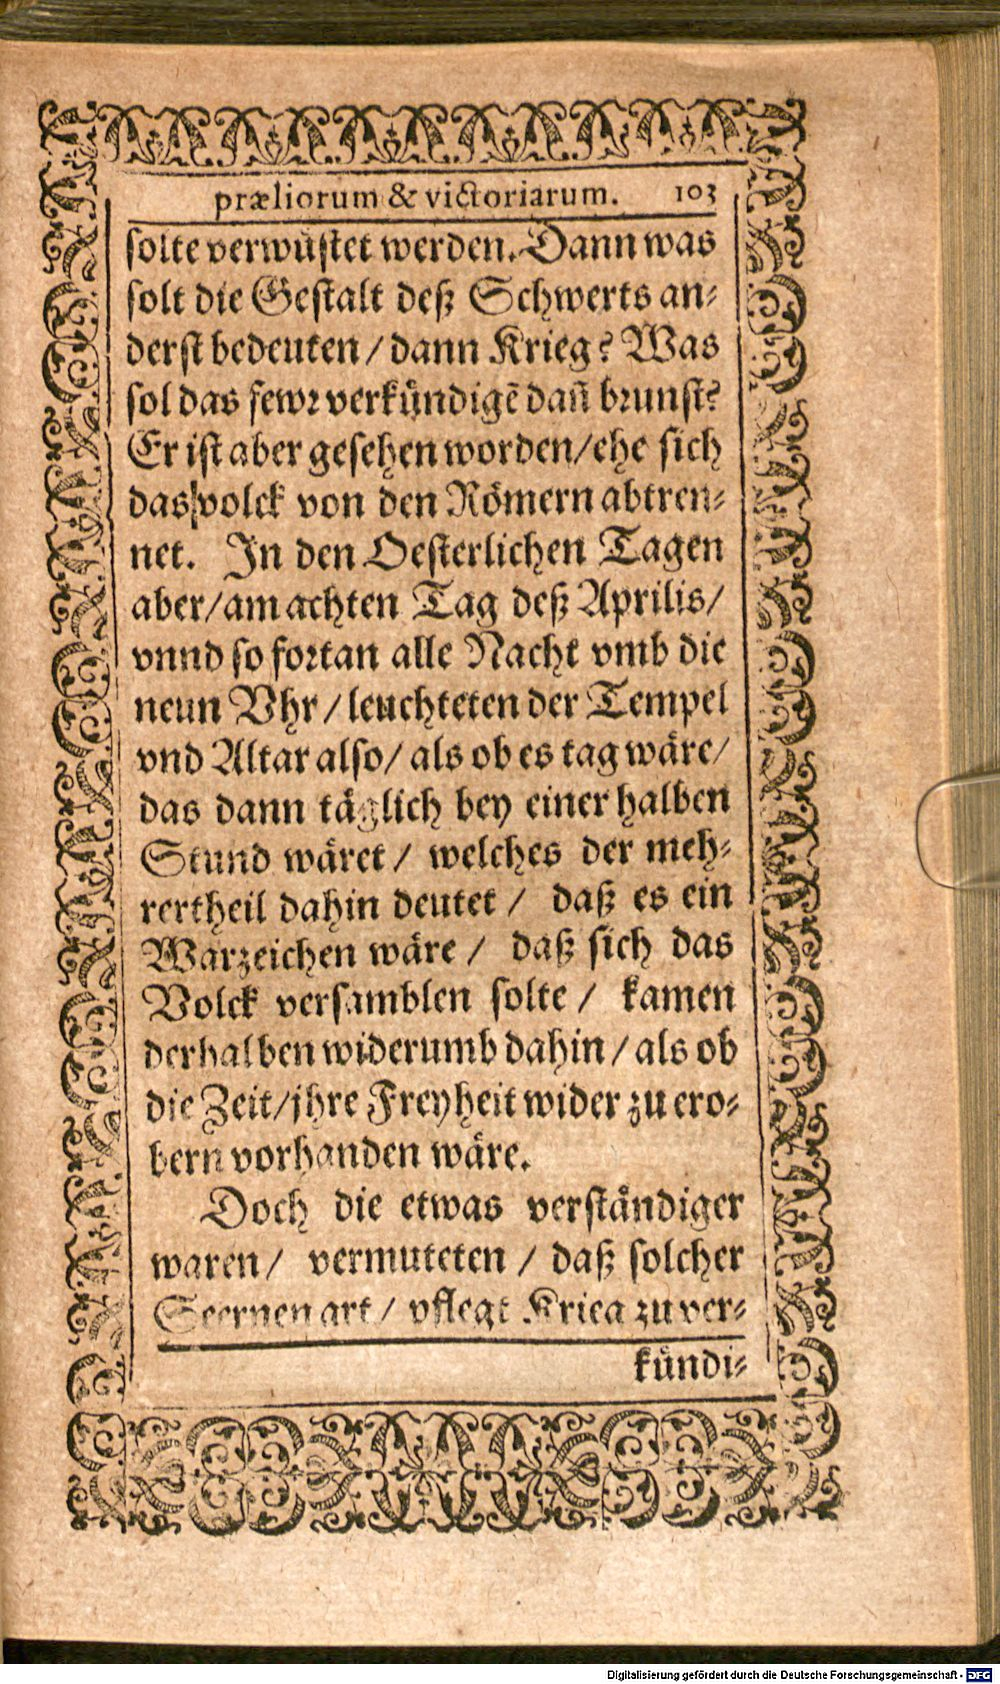 præliorum & victoriarum. 103
solte verwůstet werden. Dann was
solt die Gestalt deß Schwerts an-
derst bedeuten / dann Krieg? Was
sol das fewr verkůndigẽ dañ brunst?
Er ist aber gesehen worden/ehe sich
das volck von den Römern abtren-
net. In den Oesterlichen Tagen
aber/am achten Tag deß Aprilis/
vnnd so fortan alle Nacht vmb die
neun Vhr / leuchteten der Tempel
vnd Altar also/ als ob es tag wäre/
das dann täglich bey einer halben
Stund wäret / welches der meh-
rertheil dahin deutet / daß es ein
Warzeichen wäre / daß sich das
Volck versamblen solte / kamen
derhalben widerumb dahin / als ob
die Zeit/jhre Freyheit wider zu ero-
bern vorhanden wäre.
Doch die etwas verståndiger
waren/ vermuteten / daß solcher
Sternen art / pflegt Krieg zu ver-
kůndi-
Digitalisierung gefördert durch die Deutsche Forschungsgemeinschaft - DFG